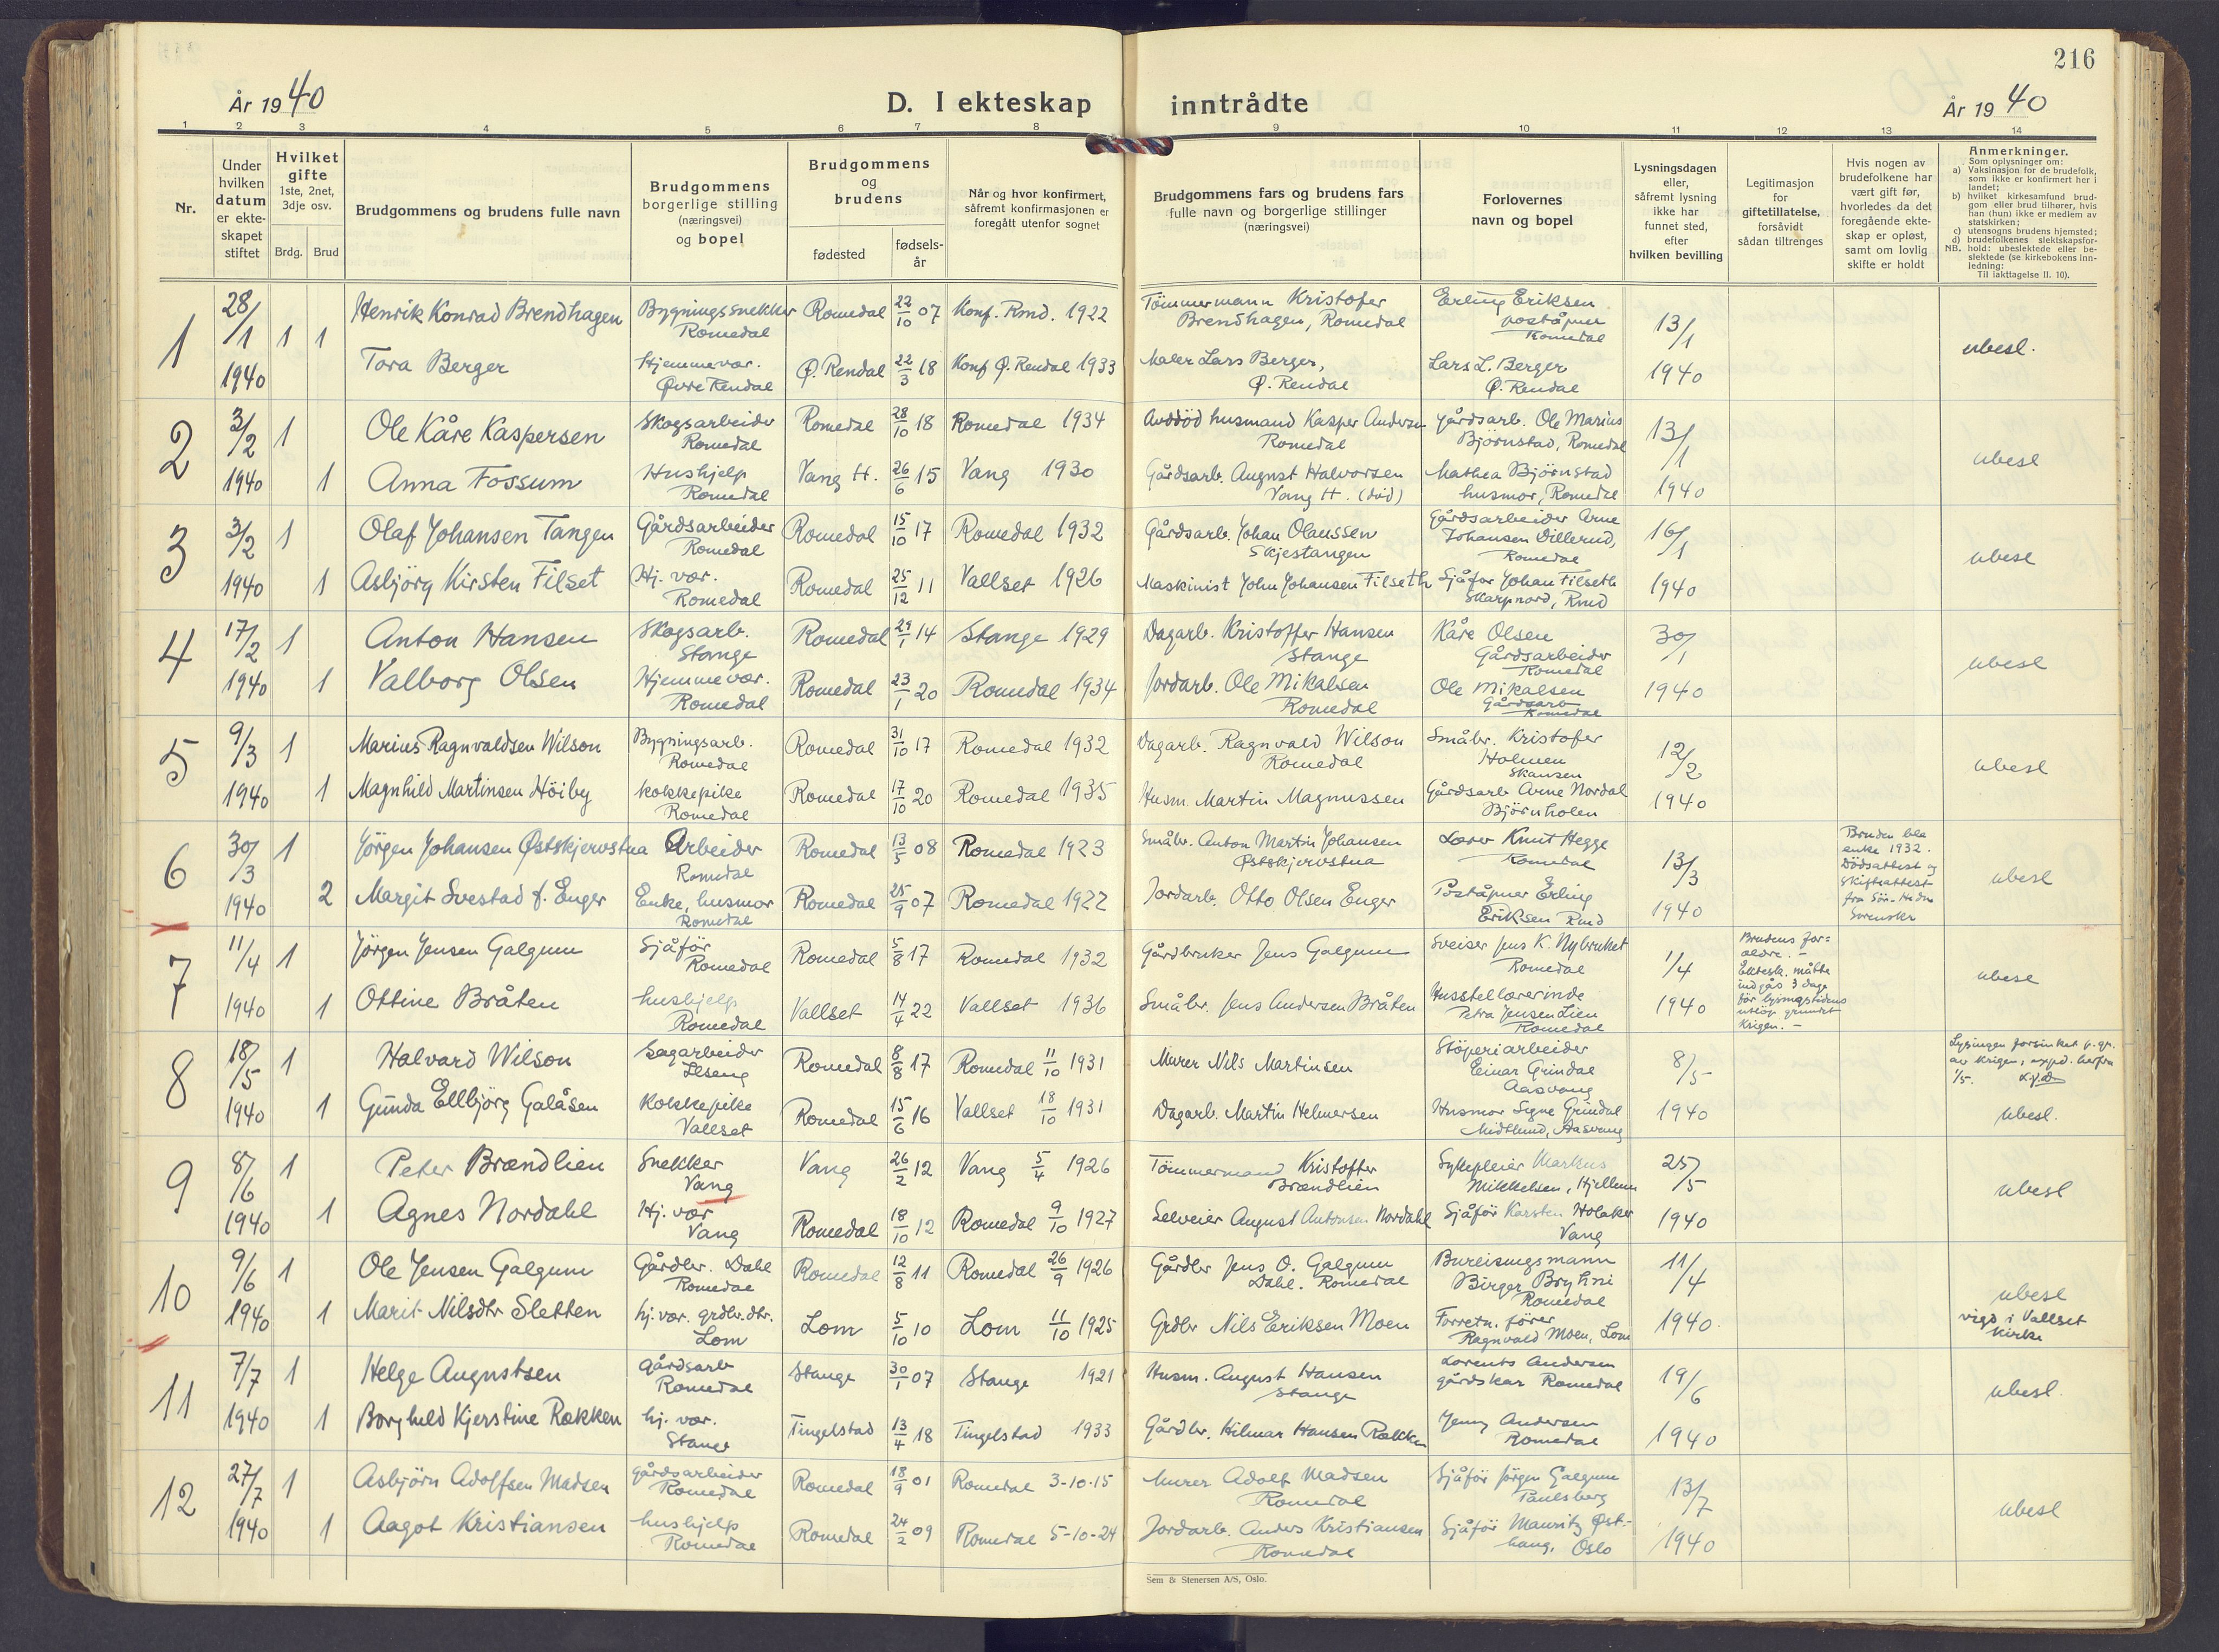 216
År 1940
D. I ekteskap inntrådte
År 1940
1 2 3 4 5 6 7 8 9 10 11 12 13 14
Nr.
Under
hvilken
datum
er ekte-
skapet
stiftet
Hvilket
gifte
1ste, 2net,
3dje osv.
Brdg. Brud
Brudgommens og brudens fulle navn
Brudgommens
borgerlige stilling
(næringsvei)
og bopel
Brudgommens
og
brudens
fødested
fødsels-
år
Når og hvor konfirmert,
såfremt konfirmasjonen er
foregått utenfor sognet
Brudgommens fars og brudens fars
fulle navn og borgerlige stillinger
(næringsvei)
Forlovernes
navn og bopel
Lysningsdagen
eller,
såfremt lysning
ikke har
funnet sted,
efter
hvilken bevilling
Legitimasjon
for
giftetillatelse,
forsåvidt
sådan tiltrenges
Hvis nogen av
brudefolkene har
vært gift før,
hvorledes da det
foregående ekte-
skap er opløst,
samt om lovlig
skifte er holdt
Anmerkninger.
Som oplysninger om:
a) Vaksinasjon for de brudefolk,
som ikke er konfirmert her i
landet;
b) hvilket kirkesamfund brud-
gom eller brud tilhører, hvis
han (hun) ikke er medlem av
statskirken;
c) utensogns brudens hjemsted;
d) brudefolkenes slektskapsfor-
NB. hold: ubeslektede eller be-
slektede (se kirkebokens inn-
ledning;
Til iakttagelse II. 10).
1 28/1 1940 1 1
Henrik Konrad Brendhagen Bygningssnekker Romedal Romedal 22/10 07 Konf. Rmd. 1922 Tömmermann Kristofer Brendhagen, Romedal Erling Eriksen poståpner Romedal 13/1
Tora Berger Hjemmevær. Øvre Rendal Ø. Rendal 22/3 18 Konf Ø. Rendal 1933 Maler Lars Berger, Ø. Rendal Lars L. Berger Ø. Rendal 1940 ubesl.
2 3/2 1940 1 1
Ole Kåre Kaspersen Skogsarbeider Romedal Romedal 28/10 18 Romedal 1934 Avddöd husmand Kasper Andersen Romedal Gårdsarb. Ole Marius Björnstad, Romedal 13/1
Anna Fossum Hushjelp Romedal Vang H. 26/6 15 Vang 1930 Gårdsarb. August Halvorsen Vang H. (död) Mathea Björnstad husmor, Romedal 1940 ubesl
3 3/2 1940 1 1
Olaf Johansen Tangen Gårdsarbeider Romedal Romedal 15/10 17 Romedal 1932 Gårdsarb. Johan Olaussen Skjestangen Gårdsarbeider Arne Johansen Dillerud, Romedal 16/1
Asbjörg Kirsten Filset Hj. vær. Romedal Romedal 25/12 11 Vallset 1926 Maskinist John Johansen Filseth Sjåför Johan Filseth Skarpnord, Rmd 1940 ubesl
4 17/2 1940 1 1
Anton Hansen Skogsarb. Stange Romedal 29/1 14 Stange 1929 Dagarb. Kristoffer Hansen Stange Kåre Olsen Gårdsarbeider Romedal 30/1
Valborg Olsen Hjemmevær. Romedal Romedal 23/1 20 Romedal 1934 Jordarb. Ole Mikalsen Romedal Ole Mikalsen Gårdsarb Romedal 1940 ubesl
5 9/3 1940 1 1
Marius Ragnvaldsen Wilson Bygningsarb. Romedal Romedal 31/10 17 Romedal 1932 Dagarb. Ragnvald Wilson Romedal Småbr. Kristofer Holmen Skansen 12/2
Magnhild Martinsen Höiby Kokkepike Romedal Romedal 17/10 20 Romedal 1935 Husm. Martin Magnussen Gårdsarb Arne Nordal Björnholen 1940 ubesl
6 30/3 1940 1 2
Jörgen Johansen Østskjervstua Arbeider Romedal Romedal 13/5 08 Romedal 1923 Småbr. Anton Martin Johansen Østskjervstua Lærer Knut Hegge Romedal 13/3
Margit Svestad f. Enger Enke, husmor Romedal Romedal 25/9 07 Romedal 1922 Jordarb. Otto Olsen Enger Poståpner Erling Eriksen Rmd 1940
Bruden ble
enke 1932.
Dödsattest og
Skifteattest
fra Sör-Hedm
Sorensk.
ubesl
7 11/4 1940 1 1
Jörgen Jensen Galgum Sjåför Romedal Romedal 5/8 17 Romedal 1932 Gårdbruker Jens Galgum Sveiser Jens K. Nybruket Romedal 1/4
Ottine Bråten hushjelp Romedal Vallset 14/4 22 Vallset 1936 Småbr. Jens Andersen Bråten Husstellærerinde Petra Jensen Lien Romedal 1940
Brudens for-
eldre. -
Ektesk. måtte
indgås 3 dage
för lysningstidens
utlöp grundet
Krigen. -
ubesl
8 18/5 1940 1 1
Halvard Wilson Sagarbeider Ilseng Romedal 8/8 17 Romedal 11/10 1931 Murer Nils Martinsen Støperiarbeider Einar Grindal Aasvang 8/5
Gunda Ellbjörg Galåsen Kokkepike Vallset Romedal 15/6 16 Vallset 18/10 1931 Dagarb. Martin Helmersen Husmor Signe Grindal Midtlund, Aasvang 1940
Lysingen forsinket p. gr.
av krigen, opped. herfra
1/5.
ubesl.
9 8/6 1940 1 1
Peter Brændlien Snekker Vang Vang 26/2 12 Vang 5/4 1926 Tömmermand Kristoffer Brændlien Sykepleier Markus Mikkelsen, Hjellum 25/5
Agnes Nordahl Hj. vær Vang Romedal 18/10 12 Romedal 9/10 1927 Selveier August Antonsen Nordahl Sjåför Karsten Holaker Vang 1940 ubesl
10 9/6 1940 1 1
Ole Jensen Galgum Gårdbr. Dahl Romedal Romedal 12/8 11 Romedal 26/9 1926 Gårdbr Jens O. Galgum Dahl. Romedal Bureisingsmann Birger Bryhni Romedal 11/4
Marit Nilsdtr Sletten hj. vær. grdbr. dtr. Lom Lom 5/10 10 Lom 11/10 1925 Grdbr Nils Eriksen Moen Forretn. förer Ragnvald Moen, Lom 1940.
ubesl
vigd i Vallset
Kirke
11 7/7 1940 1 1
Helge Augustsen gårdsarb Romedal Stange 30/1 07 Stange 1921 Husm. August Hansen Stange Lorents Andersen gårdskar Romedal 19/6
Borghild Kjerstine Rækken hj. vær. Stange Tingelstad 13/4 18 Tingelstad 1933 Gårdbr. Hilmar Hansen Rækken Jenny Andersen Romedal 1940 ubesl.
12 27/7 1940 1 1
Asbjörn Adolfsen Madsen gårdsarbeider Romedal Romedal 18/9 01 Romedal 3-10-15 Murer Adolf Madsen Romedal Sjåför Jörgen Galgum Paulsberg 13/7
Aagot Kristiansen hushjelp Romedal Romedal 24/2 09 Romedal 5-10-24 Jordarb. Anders Kristiansen Romedal Sjåför Mauritz Øst-haug, Oslo 1940 ubesl
Sem & Stenersen A/S, Oslo.